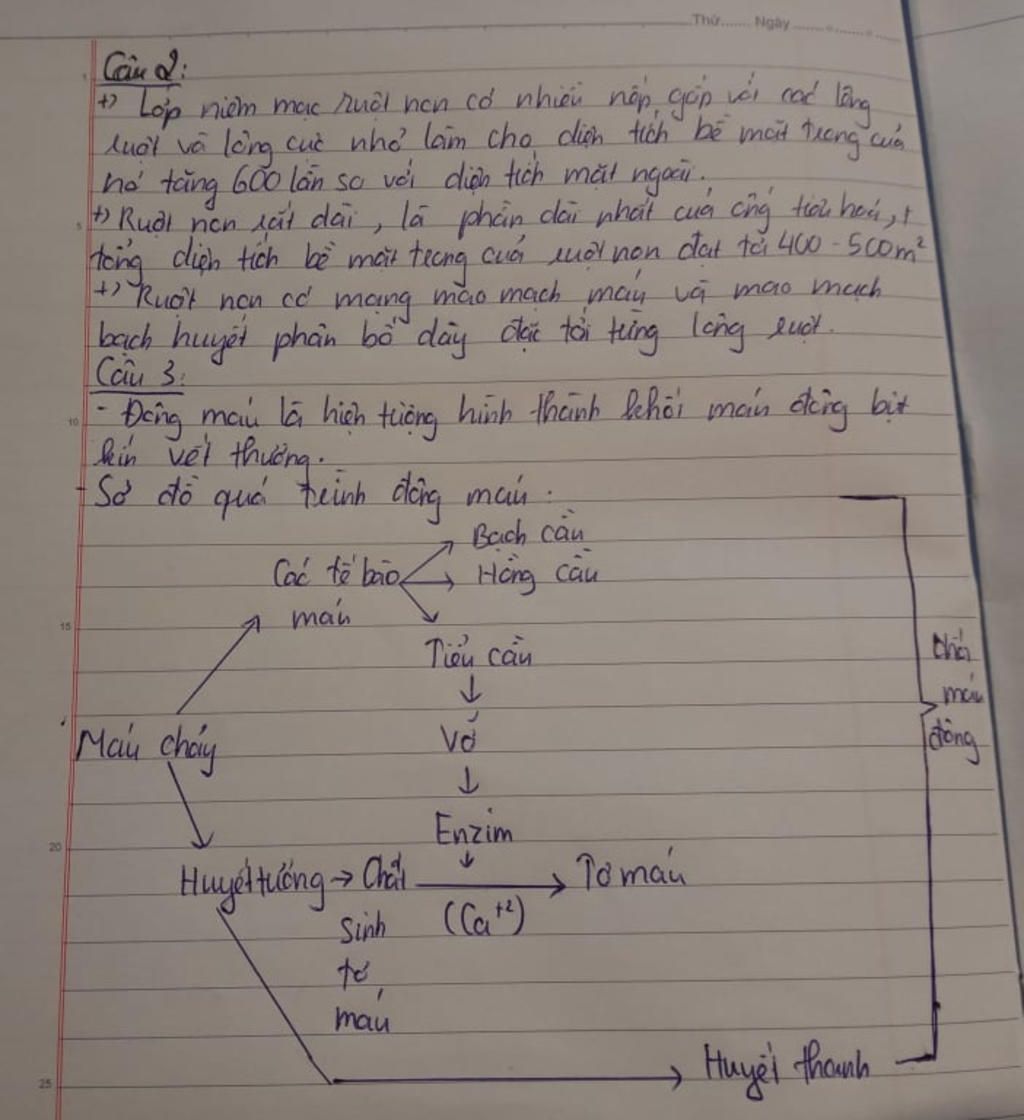 Thứ....... Ngày ...............
Câu 2:
+) Lớp niêm mạc ruột non có nhiều nếp gấp với các lông
ruột và lông cực nhỏ làm cho diện tích bề mặt trong của
nó tăng 600 lần so với diện tích mặt ngoài.
5
+) Ruột non rất dài, là phần dài nhất của ống tiêu hoá, +
tổng diện tích bề mặt trong của ruột non đạt tới 400 - 500m²
+) Ruột non có mạng mao mạch máu và mao mạch
bạch huyết phân bố dày đặc tới từng lông ruột.
Câu 3:
10
- Đông máu là hiện tượng hình thành khối máu đông bịt
kín vết thương.
Sơ đồ quá trình đông máu:
Bạch cầu
Các tế bào
máu
Hồng cầu
15
Tiểu cầu
Máu chảy
Vỡ
Khối
máu
đông
20
Enzim
Huyết tương → Chất
sinh
tơ
máu
(Ca⁺²)
Tơ máu
Huyết thanh
25